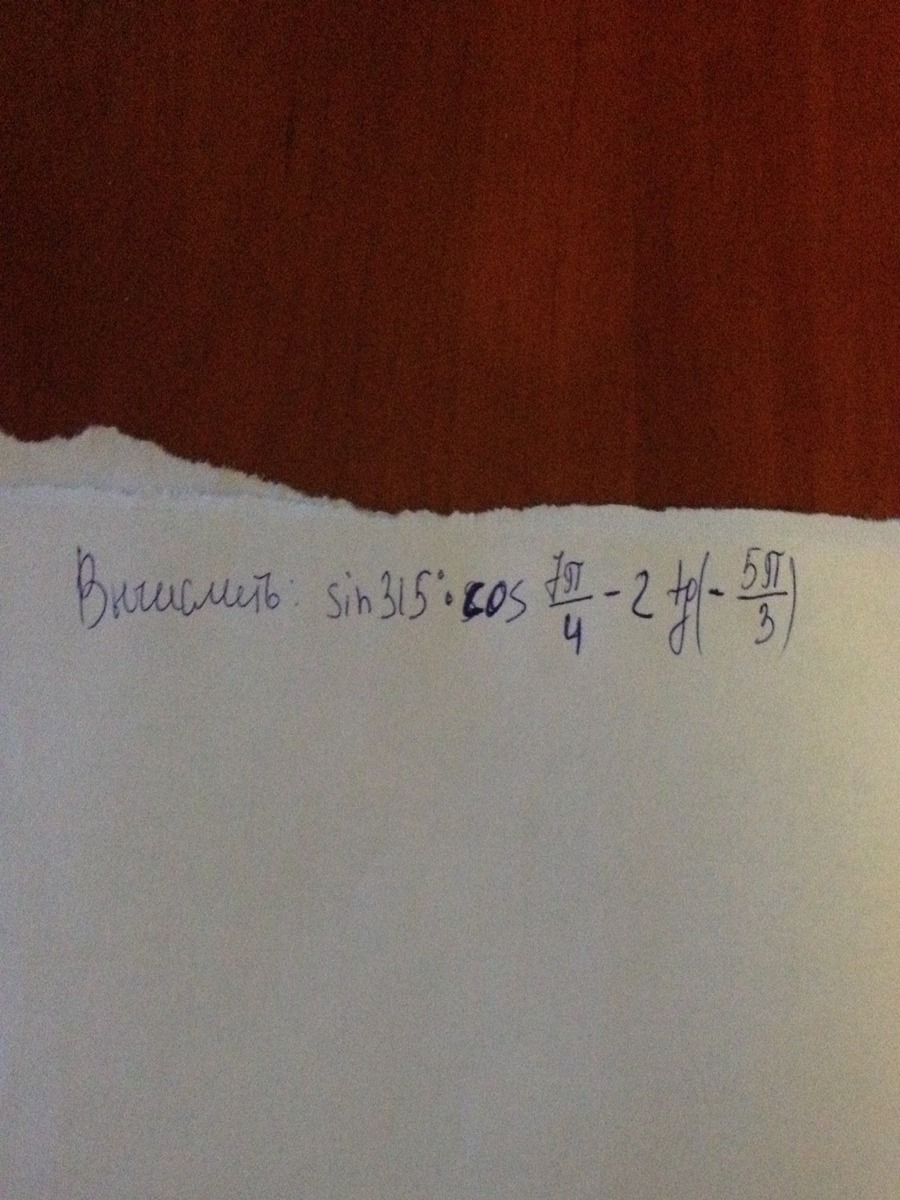 Вычислить: sin315°·cos 7π/4 - 2 tg(- 5π/3)